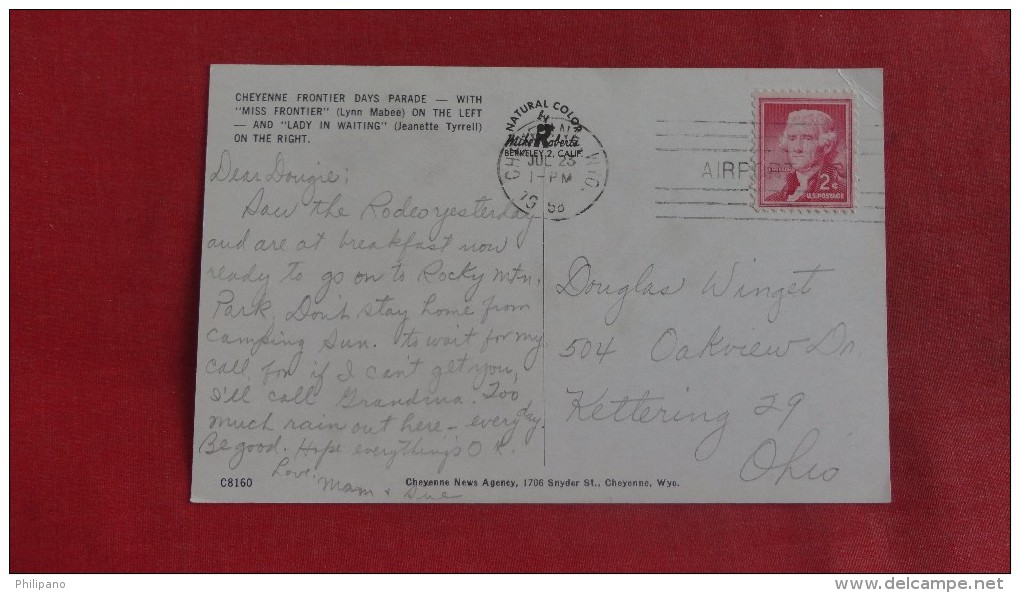 CHEYENNE FRONTIER DAYS PARADE — WITH
"MISS FRONTIER" (Lynn Mabee) ON THE LEFT
— AND "LADY IN WAITING" (Jeanette Tyrrell)
ON THE RIGHT.
Dear Dougie:
Saw the Rodeo yesterday
and are at breakfast now
ready to go on to Rocky Mtn.
Park. Don't stay home from
camping Sun. to wait for my
call for if I can't get you,
I'll call Grandma. Too
much rain out here - every day.
Be good. Hope everything's O K.
Love,
Mam + Sue
C8160
Cheyenne News Agency, 1706 Snyder St., Cheyenne, Wyo.
NATURAL COLOR
by
Mike Roberts
BERKELEY 2, CALIF.
JUL 23
1-PM
WYO.
AIRPORT
2¢
U.S. POSTAGE
Douglas Winget
504 Oakview Dr
Kettering 29
Ohio
Philipano
www.delcampe.net